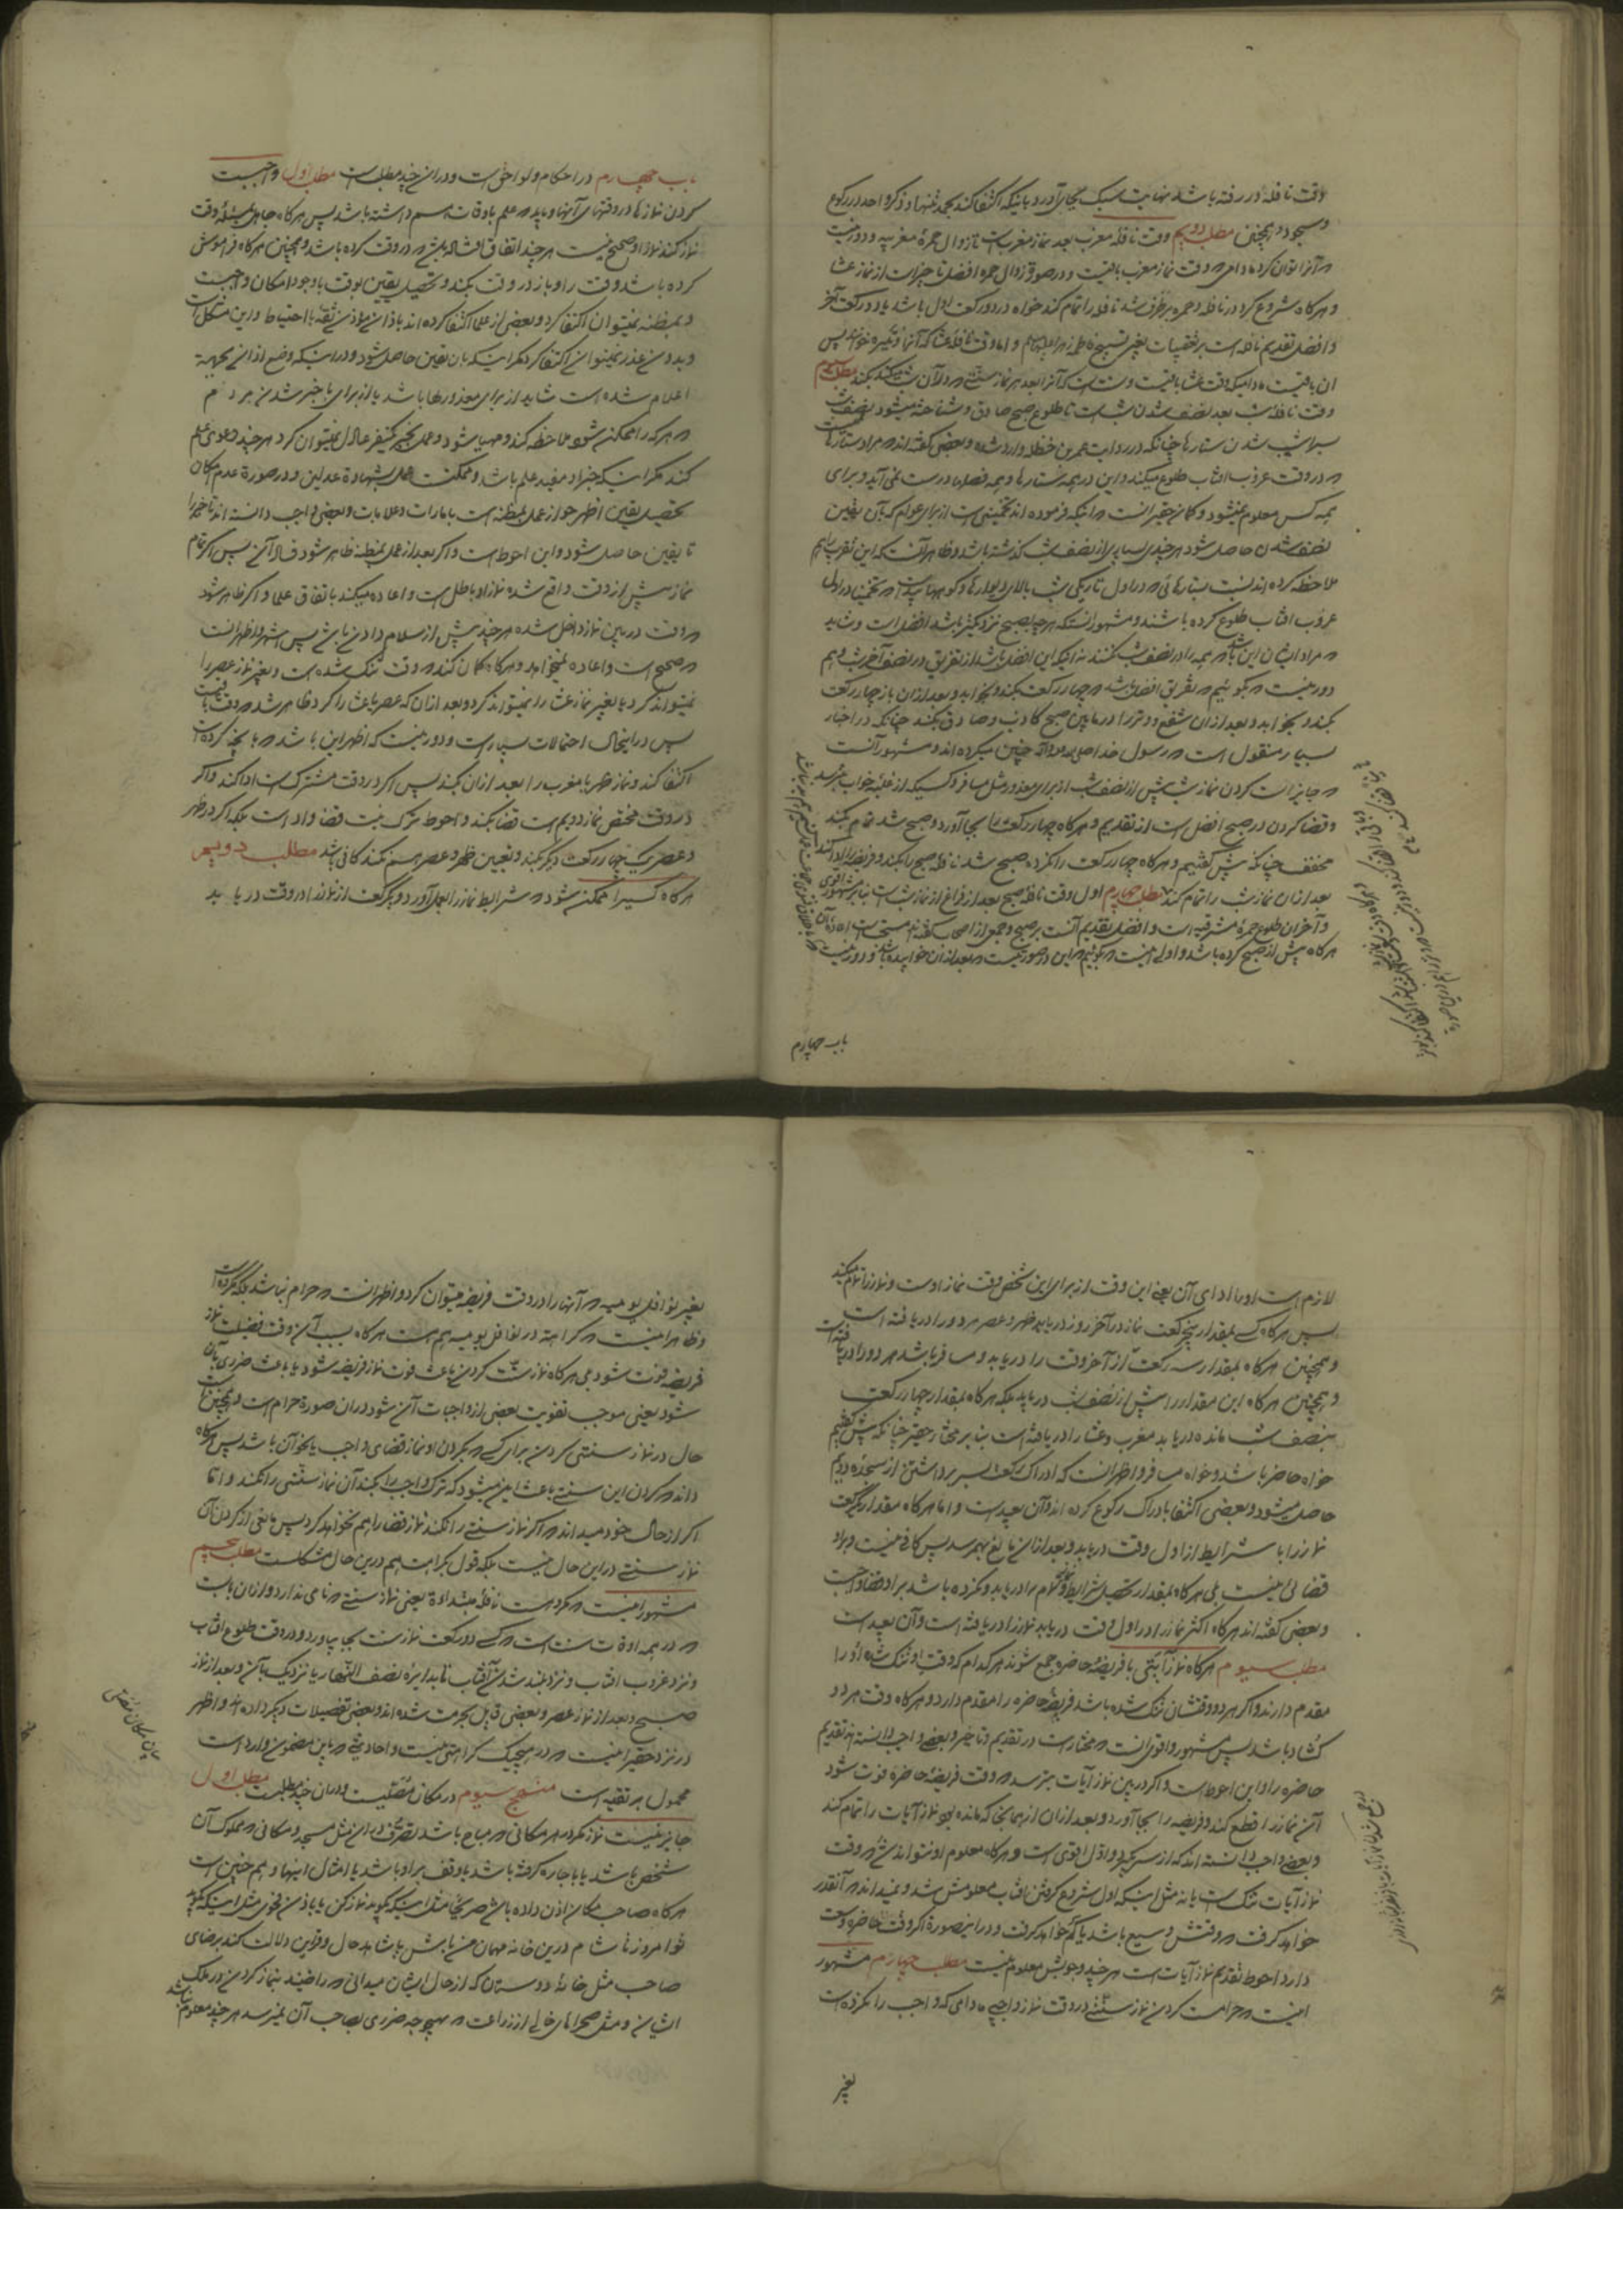 وقت نافله در رفته باشد نهایت سبک بجای آورد باینکه اکتفا کند بحمد تنها و ذکر واحد در رکوع
و سجود و همچنین مطلب دویم وقت نافلهٔ مغرب بعد نماز مغربست تا زوال حمرهٔ مغربیه و دور نیست
که آنرا توان کرد مادامی که وقت نماز مغرب باقیست و در صورة زوال حمره افضل تاخیر است از نماز عشا
و هرکاه شروع کرد در نافله و حمره برطرف شد نافله را تمام کند خواه در دو رکعت اول باشد یا دو رکعت آخر
و افضل تقدیم نافله است بر تعقیبات بغیر تسبیح فاطمه زهرا و اما وقت نافلهٔ عشا که آنرا وتیره خوانند پس
آن باقیست مادامیکه وقت عشا باقیست و سنت است که آنرا بعد هر نماز سنتی که در آن شب میکند بکند مطلب سیم
وقت نافلهٔ شب بعد نصف شدن شب است تا طلوع صبح صادق و شناخته میشود نصف شب
بسراشیب شدن ستارها چنانکه در روایت عمر بن حنظله وارد شده و بعضی گفته اند که مراد ستارهاست
که در وقت غروب افتاب طلوع میکند و این در همه ستارها و همه فصلها درست نمی آید و برای
همه کس معلوم نمیشود و گمان حقیر آنست که اینکه فرموده اند تخمینی است از برای عوام که بآن یقین
نصف شدن حاصل شود هرچند بسیاری از نصف شب گذشته باشد و ظاهر آنست که این تقریب را هم
ملاحظه کرده اند نسبت بستارهائی که در اول تاریکی شب بالای دیوارها و کوهها پیداست که تخمینا در اول
غروب افتاب طلوع کرده باشند و مشهور آنستکه هرچند بصبح نزدیکتر باشد افضل است و شاید
که مراد ایشان این باشد که همه را در نصف شب نکنند نه اینکه این افضل باشد از تفریق در نصف آخر شب و هم
دور نیست که بگوئیم که تفریق افضل باشد که چهار رکعت بکند و بخوابد و بعد از آن باز چهار رکعت
بکند و بخوابد و بعد از آن شفع و وتر را در مابین صبح کاذب و صادق بکند چنانکه در اخبار
بسیار منقول است که رسول خدا صلی الله علیه و آله چنین میکرده اند و مشهور آنست
که جایز است کردن نماز شب پیش از نصف شب از برای معذور مثل مسافر و کسیکه از غلبه خواب بترسد
و قضا کردن در صبح افضل است از تقدیم و هرکاه چهار رکعت را بجا آورد و صبح شد تمام بکند
مخفف چنانکه پیش گفتیم و هرکاه چهار رکعت را نکرده صبح شد نافلهٔ صبح را بکند و فریضه را ادا کند
بعد از آن نماز شب را تمام کند مطلب چهارم اول وقت نافلهٔ صبح بعد از فراغ از نماز شب است بنابر مشهور اقوی
و آخر آن طلوع حمرهٔ مشرقیه است و افضل تقدیم آنست بر صبح و جمعی از اصحاب گفته اند مستحب است اعادهٔ آن
هرکاه پیش از صبح کرده باشد و اولی اینست که بگوئیم که این در صورتیست که بعد از آن خوابیده باشد و دور نیست
باب چهارم
باب چهارم در احکام و لواحق است و در آن چند مطلب است مطلب اول واجبست
کردن نمازها در وقتهای آنها و باید که علم باوقات هم داشته باشد پس هرکاه جاهل بمسئلهٔ وقت
نماز کند نماز او صحیح نیست هرچند اتفاق افتاده باشد که در وقت کرده باشد و همچنین هرکاه فراموش
کرده باشد وقت را و باز در وقت بکند و تحصیل یقین بوقت با وجود امکان واجبست
و بمظنه نمیتوان اکتفا کرد و بعضی از علما اکتفا کرده اند باذان مؤذن ثقه با احتیاط و این مشکل است
و بدون عذر نمیتوان اکتفا کرد مگر اینکه بآن یقین حاصل شود و در اینکه وضع اذان بجهة
اعلام شده است شاید از برای معذورها باشد یا از برای باخبر شدن مردم
که هر که را ممکن شود ملاحظه کند و مهیا شود و عمل بخبر یکنفر عادل نمیتوان کرد هرچند دعوی علم
کند مگر اینکه خبر او مفید علم باشد و ممکنست عمل بشهادة عدلین و در صورة عدم امکان
تحصیل یقین اظهر جواز عمل بمظنه است بامارات و علامات و بعضی واجب دانسته اند تاخیر را
تا یقین حاصل شود و این احوط است و اگر بعد از عمل بمظنه ظاهر شود فساد آن پس اگر تمام
نماز پیش از وقت واقع شده نماز او باطل است و اعاده میکند باتفاق علما و اگر ظاهر شود
که وقت در بین نماز داخل شده هرچند پیش از سلام دادن باشد پس اشهر و اظهر آنست
که صحیح است و اعاده نمیخواهد و هرکاه گمان کند که وقت تنگ شده است و بغیر نماز عصر را
نمیتواند کرد یا بغیر نماز عشا را نمیتواند کرد و بعد از آن که عصر یا عشا را کرد ظاهر شد که وقت باقیست
پس در اینحال احتمالات بسیار است و دور نیست که اظهر این باشد که بآنچه کرده است
اکتفا کند و نماز ظهر یا مغرب را بعد از آن بکند پس اگر در وقت مشترک است ادا کند و اگر
در وقت مختص نماز دویم است قضا بکند و احوط ترک نیت قضا و ادا است بلکه اگر در ظهر
و عصر یک چهار رکعت دیگر بکند و تعیین ظهر و عصر هم نکند کافی باشد مطلب دویم
هرکاه کسی را ممکن شود که شرایط نماز را بعمل آورد و یکرکعت از نماز را در وقت دریابد
لازم است او را ادای آن یعنی این وقت از برای این شخص وقت نماز اوست و نماز را تمام میکند
پس هرکاه کسی بمقدار پنج رکعت نماز در آخر روز دریابد ظهر و عصر هر دو را دریافته است
و همچنین هرکاه بمقدار سه رکعت از آخر وقت را دریابد و مسافر باشد هر دو را دریافته است
و همچنین هرکاه این مقدار را پیش از نصف شب دریابد بلکه هرکاه بمقدار چهار رکعت
بنصف شب مانده دریابد مغرب و عشا را دریافته است بنابر مختار حقیر چنانکه پیش گفتیم
خواه حاضر باشد و خواه مسافر و اظهر آنست که ادراک رکعت بسر برداشتن از سجدهٔ دویم
حاصل میشود و بعضی اکتفا بادراک رکوع کرده اند و آن بعید است و اما هرکاه مقدار یکرکعت
نماز را با شرایط از اول وقت دریابد و بعد از آن مانع بهم رسد پس کافی نیست و بر او
قضائی نیست بلی هرکاه بمقدار تحصیل شرایط و نماز تمام را دریابد و نکرده باشد بر او قضا واجبست
و بعضی گفته اند هرکاه اکثر نماز را در اول وقت دریابد نماز را دریافته است و آن بعید است
مطلب سیوم هرکاه نماز آیتی با فریضهٔ حاضره جمع شوند هرکدام که وقت او تنگ شده او را
مقدم دارند و اگر هر دو وقتشان تنگ شده باشد فریضهٔ حاضره را مقدم دارد و هرکاه وقت هر دو
گشاد باشد پس مشهور و اقوی آنست که مختار است در تقدیم و تاخیر و بعضی واجب دانسته اند تقدیم
حاضره را و این احوط است و اگر در بین نماز آیات بترسد که وقت فریضهٔ حاضره فوت شود
آن نماز را قطع کند و فریضه را بجا آورد و بعد از آن از همانجا که مانده بود نماز آیات را تمام کند
و بعضی واجب دانسته اند که از سر گیرد و اول اقوی است و هرکاه معلوم او نتواند شد که وقت
نماز آیات تنگ است یا نه مثل اینکه اول شروع گرفتن افتاب معلومش شد و نمیداند که آنقدر
خواهد گرفت که وقتش وسیع باشد یا کم خواهد گرفت و در اینصورة اگر وقت حاضره وسعت
دارد احوط تقدیم نماز آیات است هرچند وجوبش معلوم نیست مطلب چهارم مشهور
اینست که حرامست کردن نماز سنتی در وقت نماز واجبی مادامی که واجب را نکرده است
بغیر
بغیر نوافل یومیه که آنها را در وقت فریضه میتوان کرد و اظهر آنست که حرام نباشد بلکه مکروه است
و ظاهر اینست که کراهت در نوافل یومیه هم هست هرکاه بسبب آن وقت فضیلت نماز
فریضه فوت شود بلی هرکاه نماز سنت کردن باعث فوت نماز فریضه شود یا باعث ضرری بآن
شود یعنی موجب تفویت بعضی از واجبات آن شود در آن صورة حرام است و همچنین است
حال در نماز سنتی کردن برای کسی که بر گردن او نماز قضای واجب یا نحو آن باشد پس هرکاه
داند که کردن این سنتی باعث این میشود که ترک واجب را بکند آن نماز سنتی را نکند و اما
اگر از حال خود میداند که اگر نماز سنتی را نکند نماز قضا را هم نخواهد کرد پس مانعی از کردن آن
نماز سنتی در این حال نیست بلکه قول بکراهت هم درین حال مشکلست مطلب پنجم
مشهور اینست که مکروهست نافلهٔ مبتداة یعنی نماز سنتی که نامی ندارد و از آن بابست
که در همه اوقات سنت است که کسی دو رکعت نماز سنت بجا بیاورد و در وقت طلوع افتاب
و نزد غروب افتاب و نزد بلند شدن آفتاب تا بدایرهٔ نصف النهار یا نزدیک بآن و بعد از نماز
صبح و بعد از نماز عصر و بعضی قایل بحرمت شده اند و بعضی تفصیلات دیگر داده اند و اظهر
در نزد حقیر اینست که در هیچیک کراهتی نیست و احادیثی که باین مضمون وارد است
محمول بر تقیه است منهج سیوم در مکان مصلیست و در آن چند مطلبست مطلب اول
جایز نیست نماز مگر در مکانی که مباح باشد تصرف در آن مثل مسجد و مکانی که مملوک آن
شخص باشد یا باجاره گرفته باشد یا وقف بر او باشد یا امثال اینها و هم چنین است
هرکاه صاحب مکان اذن داده باشد صریحا مثل اینکه بگوید نماز کن یا باذن فحوی مثل اینکه بگوید
تو امروز تا شام درین خانه مهمان من باش یا شاهد حال و قراین دلالت کند برضای
صاحب مثل خانهٔ دوستان که از حال ایشان میدانی که راضیند بنماز کردن در ملک
ایشان و مثل صحراهای خالی از زراعت که بهیچوجه ضرری بصاحب آن نمیرسد هرچند معلوم نباشد
بیان مکان مصلی